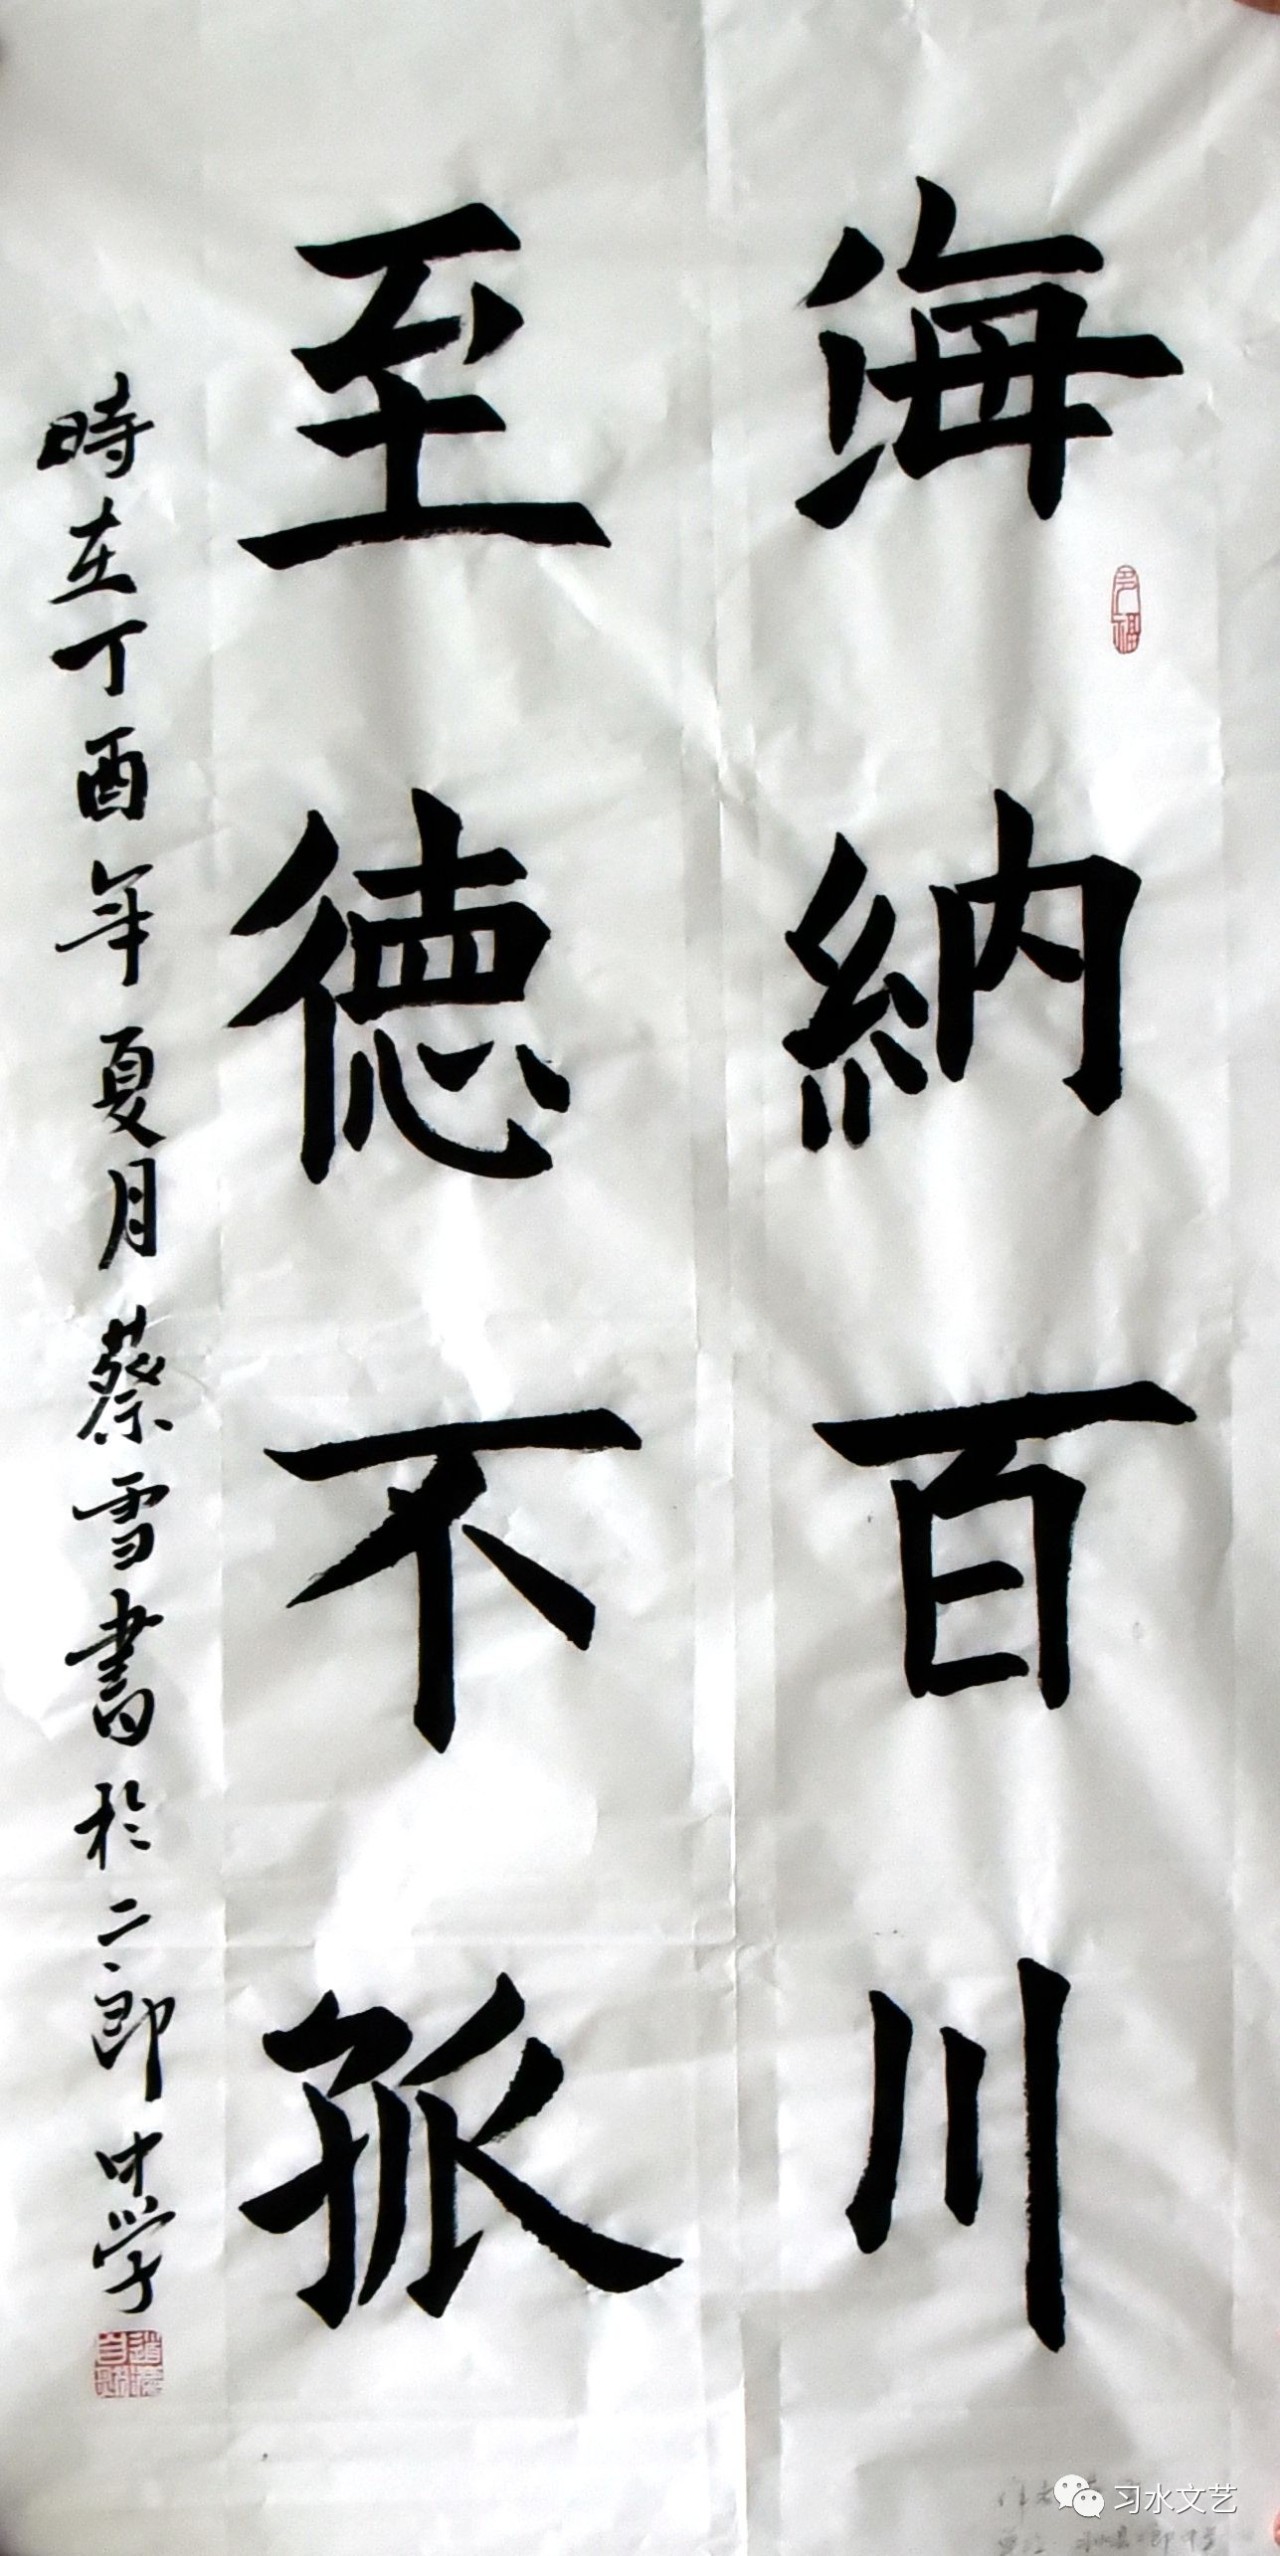 海納百川
至德不孤
時在丁酉年夏月蔡雪書於二郎中学
习水文艺